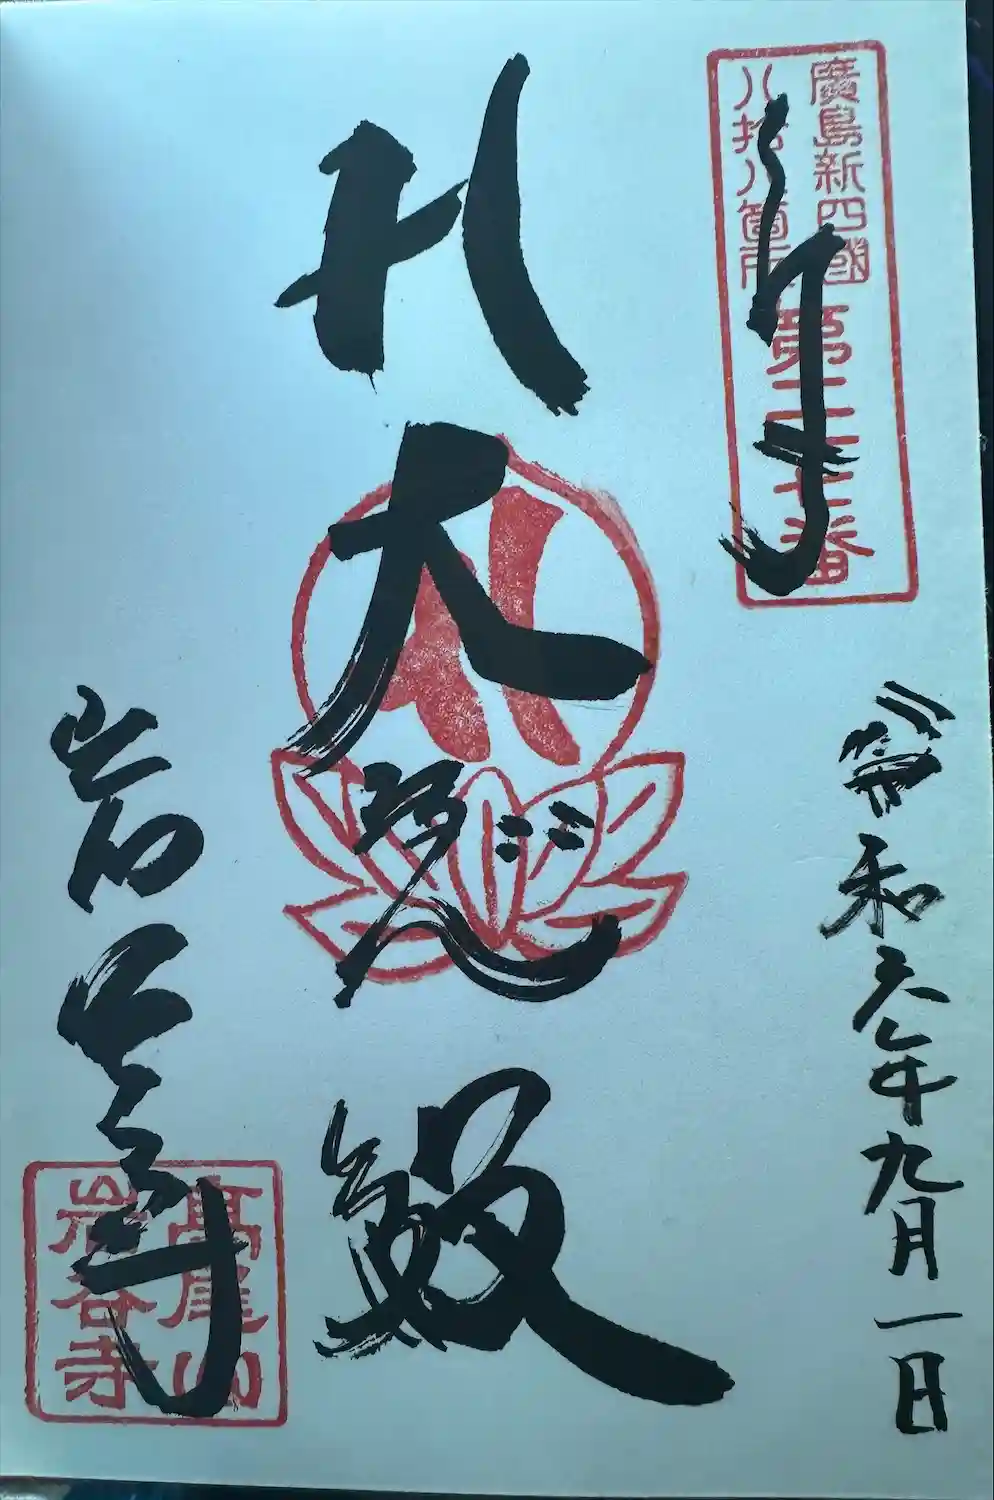 廣島新四國
八拾八箇所
第二十七番
奉拝
令和六年九月一日
大悲殿
岩谷寺
高尾山
岩谷寺